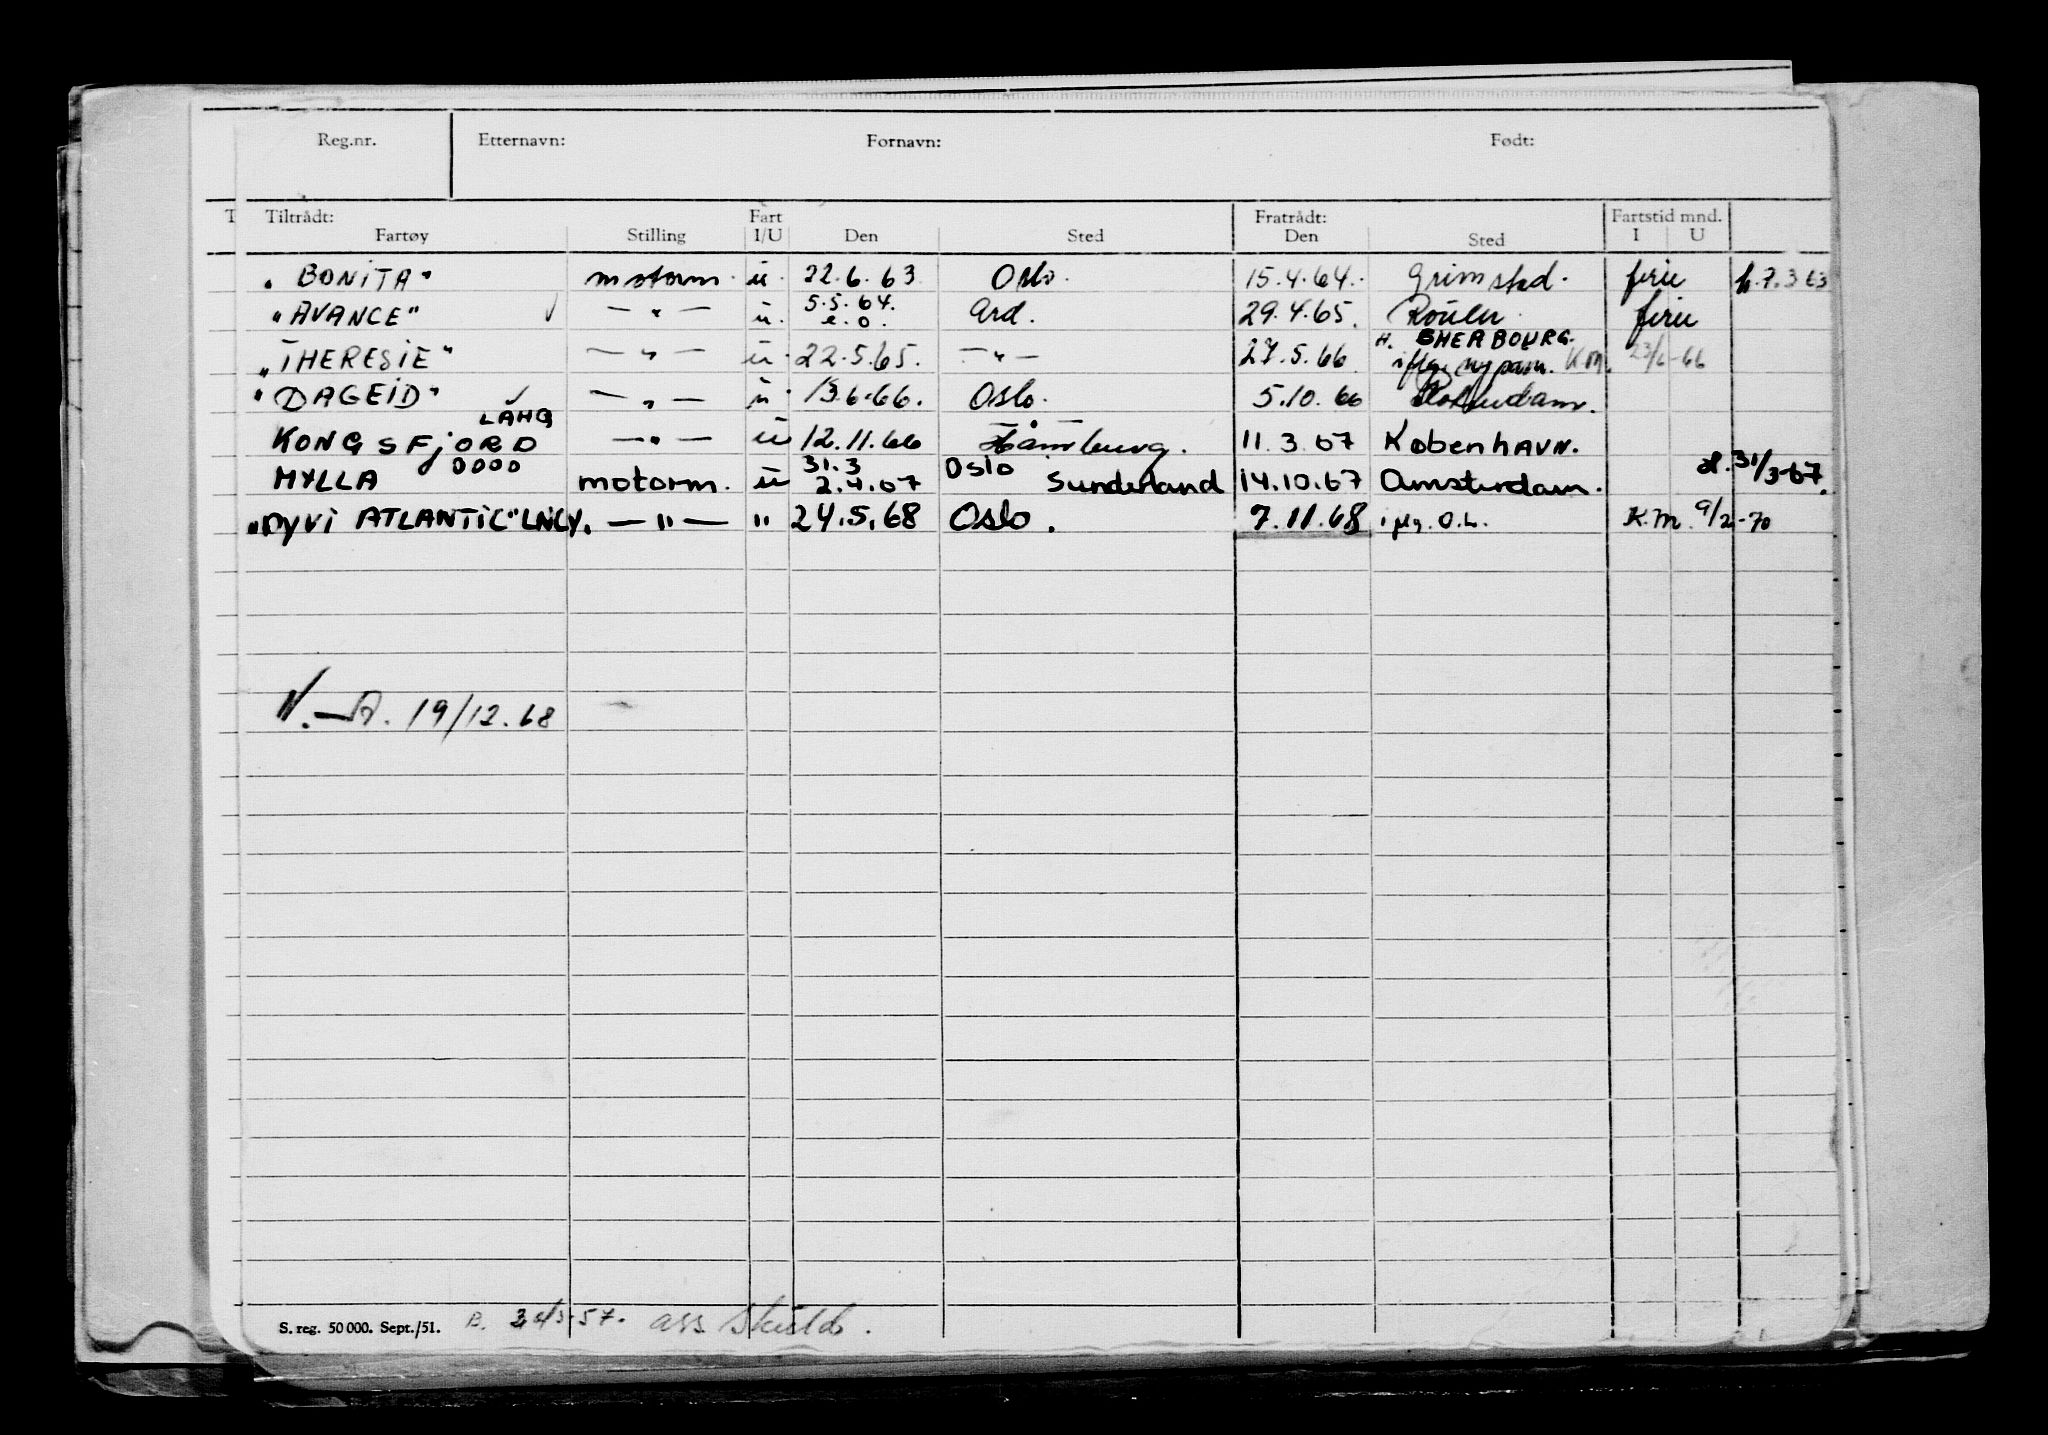 Reg.nr. Etternavn: Fornavn: Født:
T Tiltrådt: Fart Fratrådt: Fartstid mnd.
Fartøy Stilling I/U Den Sted Den Sted I U
"BONITA" motorm. u. 22.6.63 Oslo. 15.4.64. Grimstad. ferie 7.3 63
"AVANCE" — " — u. 5.5.64. e.o. Ard. 29.4.65. Rouen ferie
"THERESIE" — " — u. 22.5.65. — " — 27.5.66 H. SHERBOURG. iflg. ny pam. K.M. 23/6-66
"DAGEID" — " — u. 13.6.66. Oslo. 5.10.66 Rotterdam.
LAHG
KONGSFJORD — " — u 12.11.66 Hamburg. 11.3.67 København.
0000 31.3 Oslo
HYLLA motorm. u 2.4.67 Sunderland 14.10.67 Amsterdam. 31/3-67.
"DYVI ATLANTIC" LNCY. — " — " 24.5.68 Oslo. 7.11.68 iflg. O.L. K.M. 9/2-70
N.-A. 19/12.68
S. reg. 50 000. Sept./51. B. 57. ass Skuld.